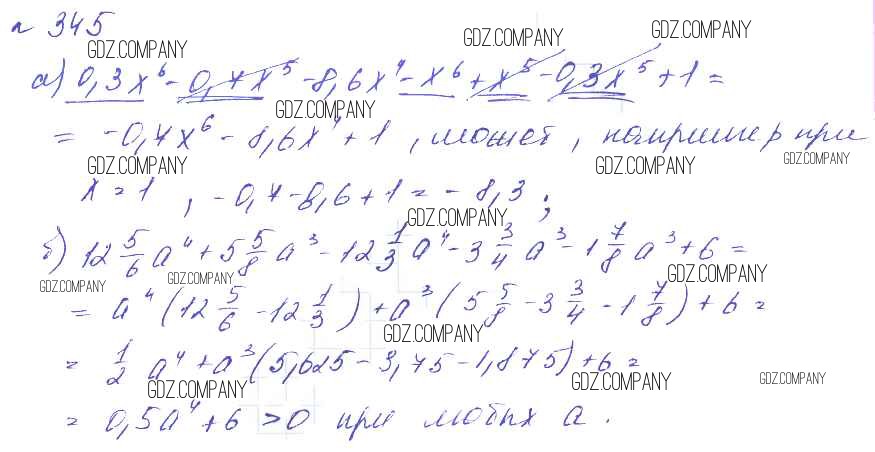 № 345
GDZ.COMPANY GDZ.COMPANY GDZ.COMPANY
а) 0,3x⁶ - 0,7x⁵ - 8,6x⁴ - x⁶ + x⁵ - 0,3x⁵ + 1 =
GDZ.COMPANY
= -0,7x⁶ - 8,6x⁴ + 1, может, например при
GDZ.COMPANY GDZ.COMPANY GDZ.COMPANY
x = 1, -0,7 - 8,6 + 1 = -8,3;
GDZ.COMPANY
б) 12 5/6 a⁴ + 5 5/8 a³ - 12 1/3 a⁴ - 3 3/4 a³ - 1 7/8 a³ + 6 =
GDZ.COMPANY GDZ.COMPANY GDZ.COMPANY
= a⁴(12 5/6 - 12 1/3) + a³(5 5/8 - 3 3/4 - 1 7/8) + 6 =
GDZ.COMPANY
= 1/2 a⁴ + a³(5,625 - 3,75 - 1,875) + 6 =
GDZ.COMPANY GDZ.COMPANY GDZ.COMPANY
= 0,5a⁴ + 6 > 0 при любых a.